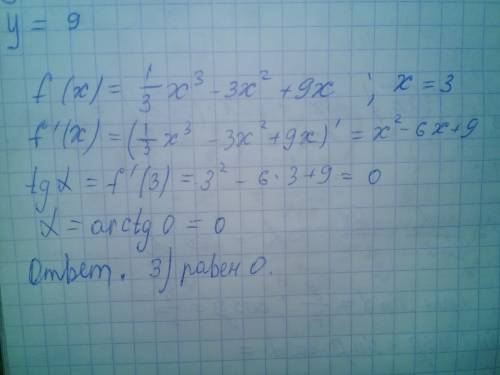 y = 9
f(x) = 1/3 x³ - 3x² + 9x ; x = 3
f'(x) = (1/3 x³ - 3x² + 9x)' = x² - 6x + 9
tg α = f'(3) = 3² - 6·3 + 9 = 0
α = arctg 0 = 0
Ответ. 3) равен 0.